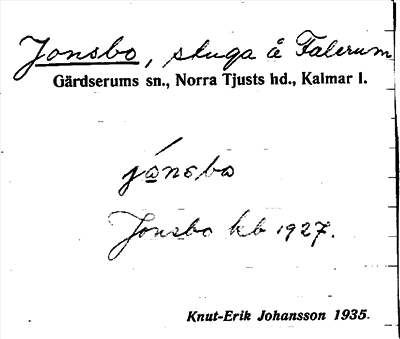 Jonsbo, stuga å Falerum
Gärdserums sn., Norra Tjusts hd., Kalmar l.
jånsbo
Jonsbo kb 1927.
Knut-Erik Johansson 1935.